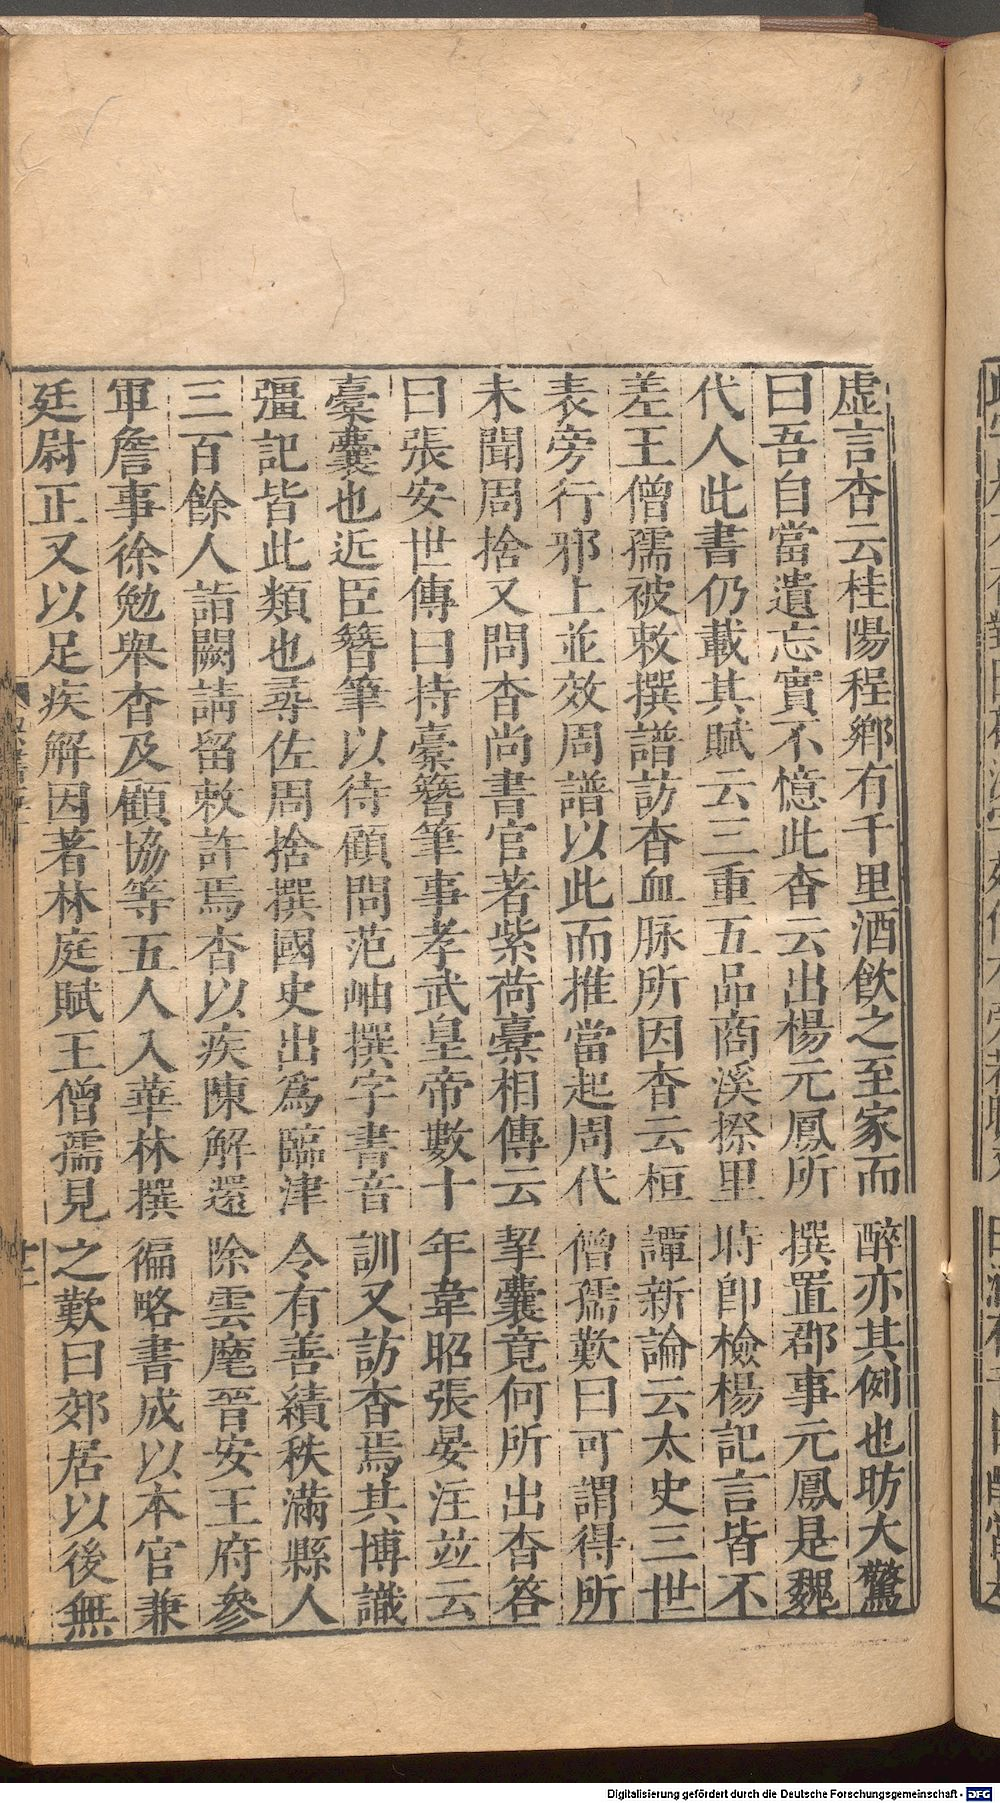 虛言杳云桂陽程鄉有千里酒飲之至家而醉亦其例也昉大驚
曰吾自當遺忘實不憶此杳云出楊元鳳所撰置郡事元鳳是魏
代人此書仍載其賦云三重五品商溪摖里時卽檢楊記言皆不
差王僧孺被敕撰譜訪杳血脉所因杳云桓譚新論云太史三世
表旁行邪上並效周譜以此而推當起周代僧孺歎曰可謂得所
未聞周捨又問杳尚書官著紫荷橐相傳云挈囊竟何所出杳答
曰張安世傳曰持橐簪筆事孝武皇帝數十年韋昭張晏注並云
橐囊也近臣簪筆以待顧問范岫撰字書音訓又訪杳焉其博識
彊記皆此類也尋佐周捨撰國史出爲臨津令有善績秩滿縣人
三百餘人詣闕請留敕許焉杳以疾陳解還除雲麾晉安王府參
軍詹事徐勉舉杳及顧協等五人入華林撰徧略書成以本官兼
廷尉正又以足疾解因著林庭賦王僧孺見之歎曰郊居以後無
Digitalisierung gefördert durch die Deutsche Forschungsgemeinschaft - DFG